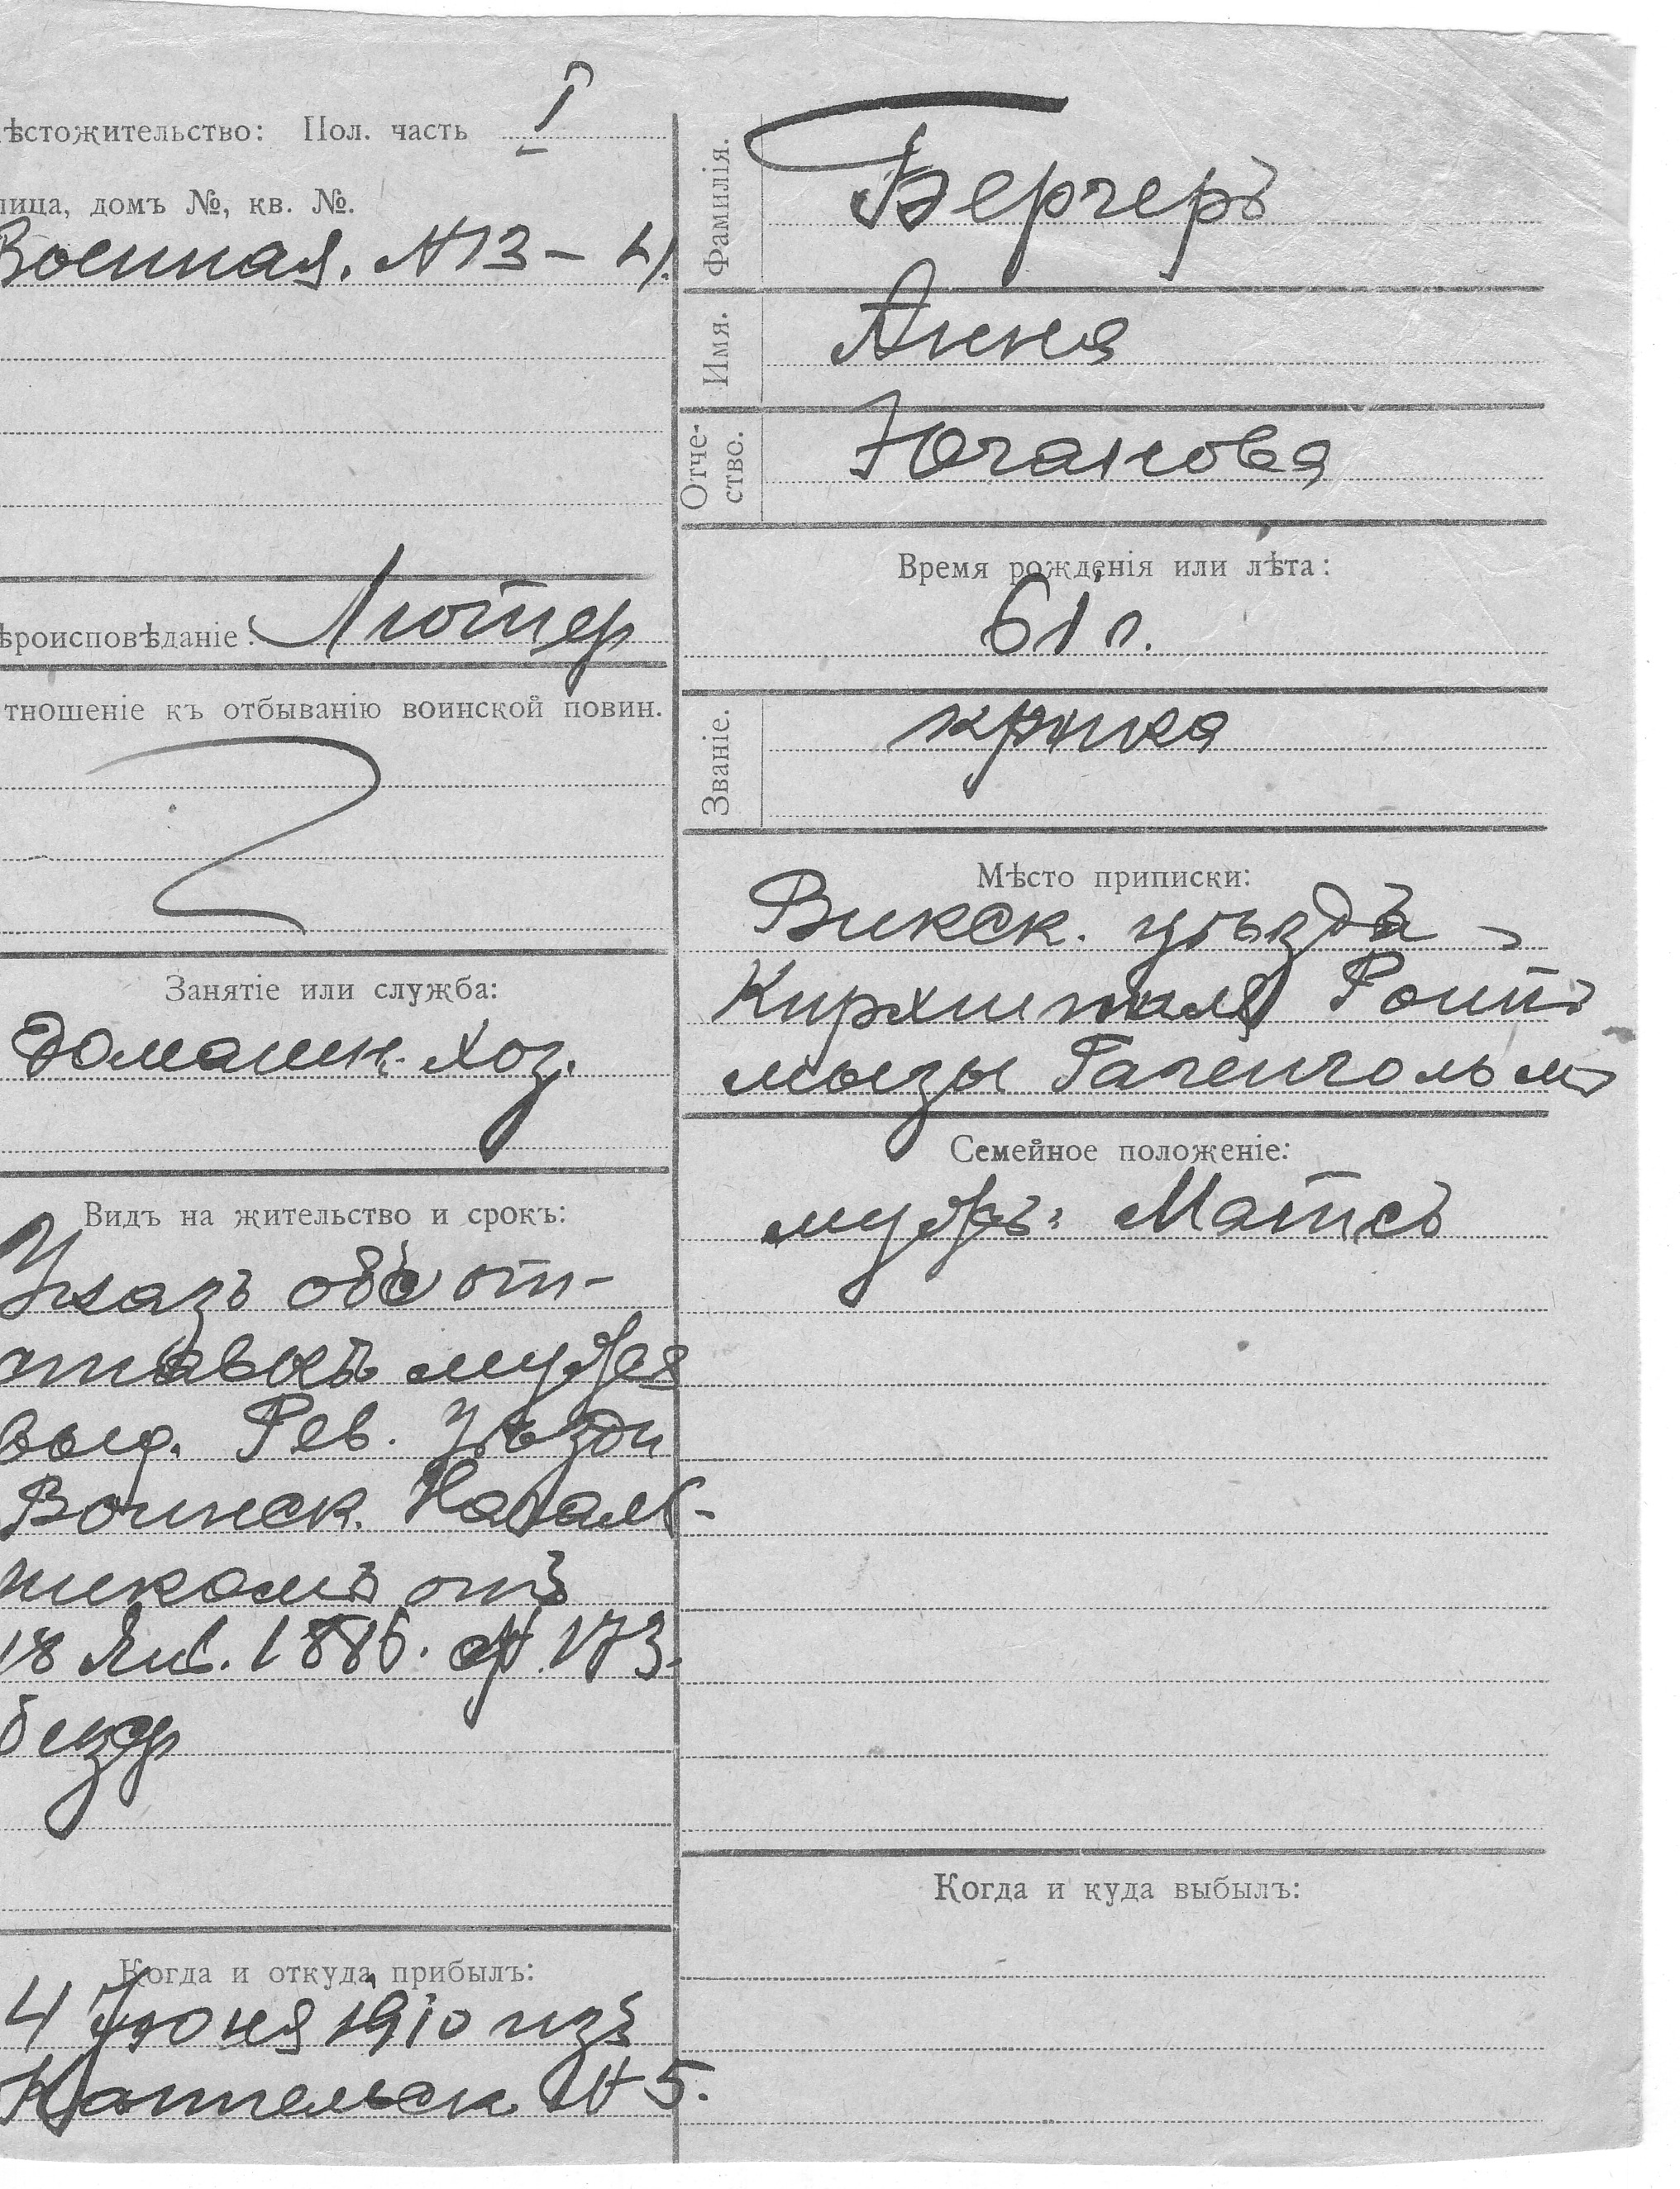 ѣстожительство: Пол. часть I
лица, домъ №, кв. №.
Военная. №13 – 4.
ѣроисповѣданіе: Лютер
тношеніе къ отбыванію воинской повин.
Занятіе или служба:
Домашн. хоз.
Видъ на жительство и срокъ:
Указъ объ от-
ставкѣ мужа
выд. Рев. Уѣздн
Воинск. Началь-
никомъ отъ
18 Янв. 1886. № 173.
безср
Когда и откуда прибылъ:
4 Іюня 1910 изъ
№ 5.
Фамилія. Бергеръ
Имя. Анна
Отче-
ство. Юганова
Время рожденія или лѣта:
61 г.
Званіе. кр-нка
Мѣсто приписки:
Викск. уѣзда
мызы Гагенгольмъ
Семейное положеніе:
мужъ: Матсъ
Когда и куда выбылъ: